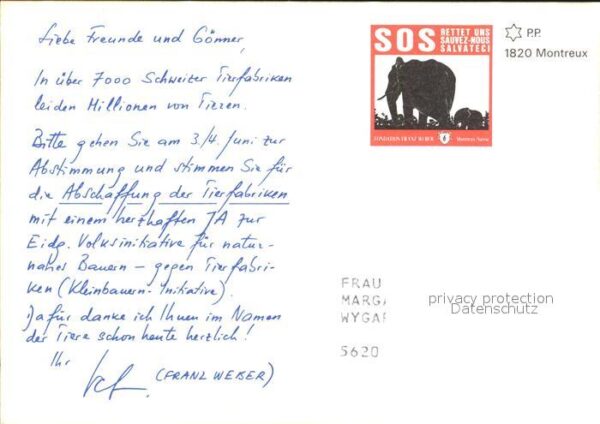 Liebe Freunde und Gönner,
In über 7000 Schweizer Tierfabriken
leiden Millionen von Tieren.
Bitte gehen Sie am 3./4. Juni zur
Abstimmung und stimmen Sie für
die Abschaffung der Tierfabriken
mit einem herzhaften JA zur
Eidg. Volksinitiative für natur-
nahes Bauern – gegen Tierfabri-
ken (Kleinbauern-Initiative).
Dafür danke ich Ihnen im Namen
der Tiere schon heute herzlich!
Ihr
(FRANZ WEBER)
SOS
RETTET UNS
SAUVEZ-NOUS
SALVATECI
FONDATION FRANZ WEBER
Montreux
P.P.
1820 Montreux
FRAU
MARGA
WYGAR
5620
privacy protection
Datenschutz